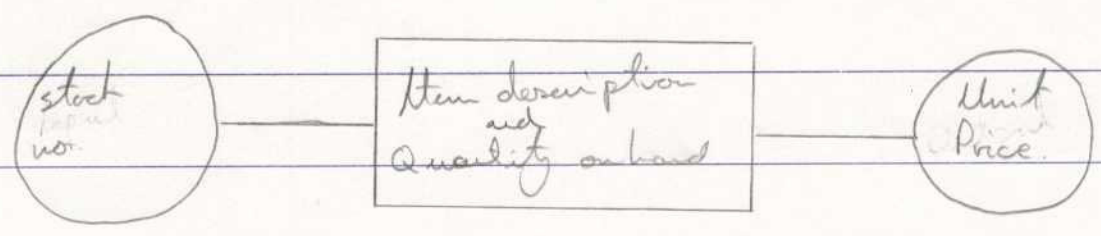 stock
no.
Item description
and
Quantity on hand
Unit
Price.